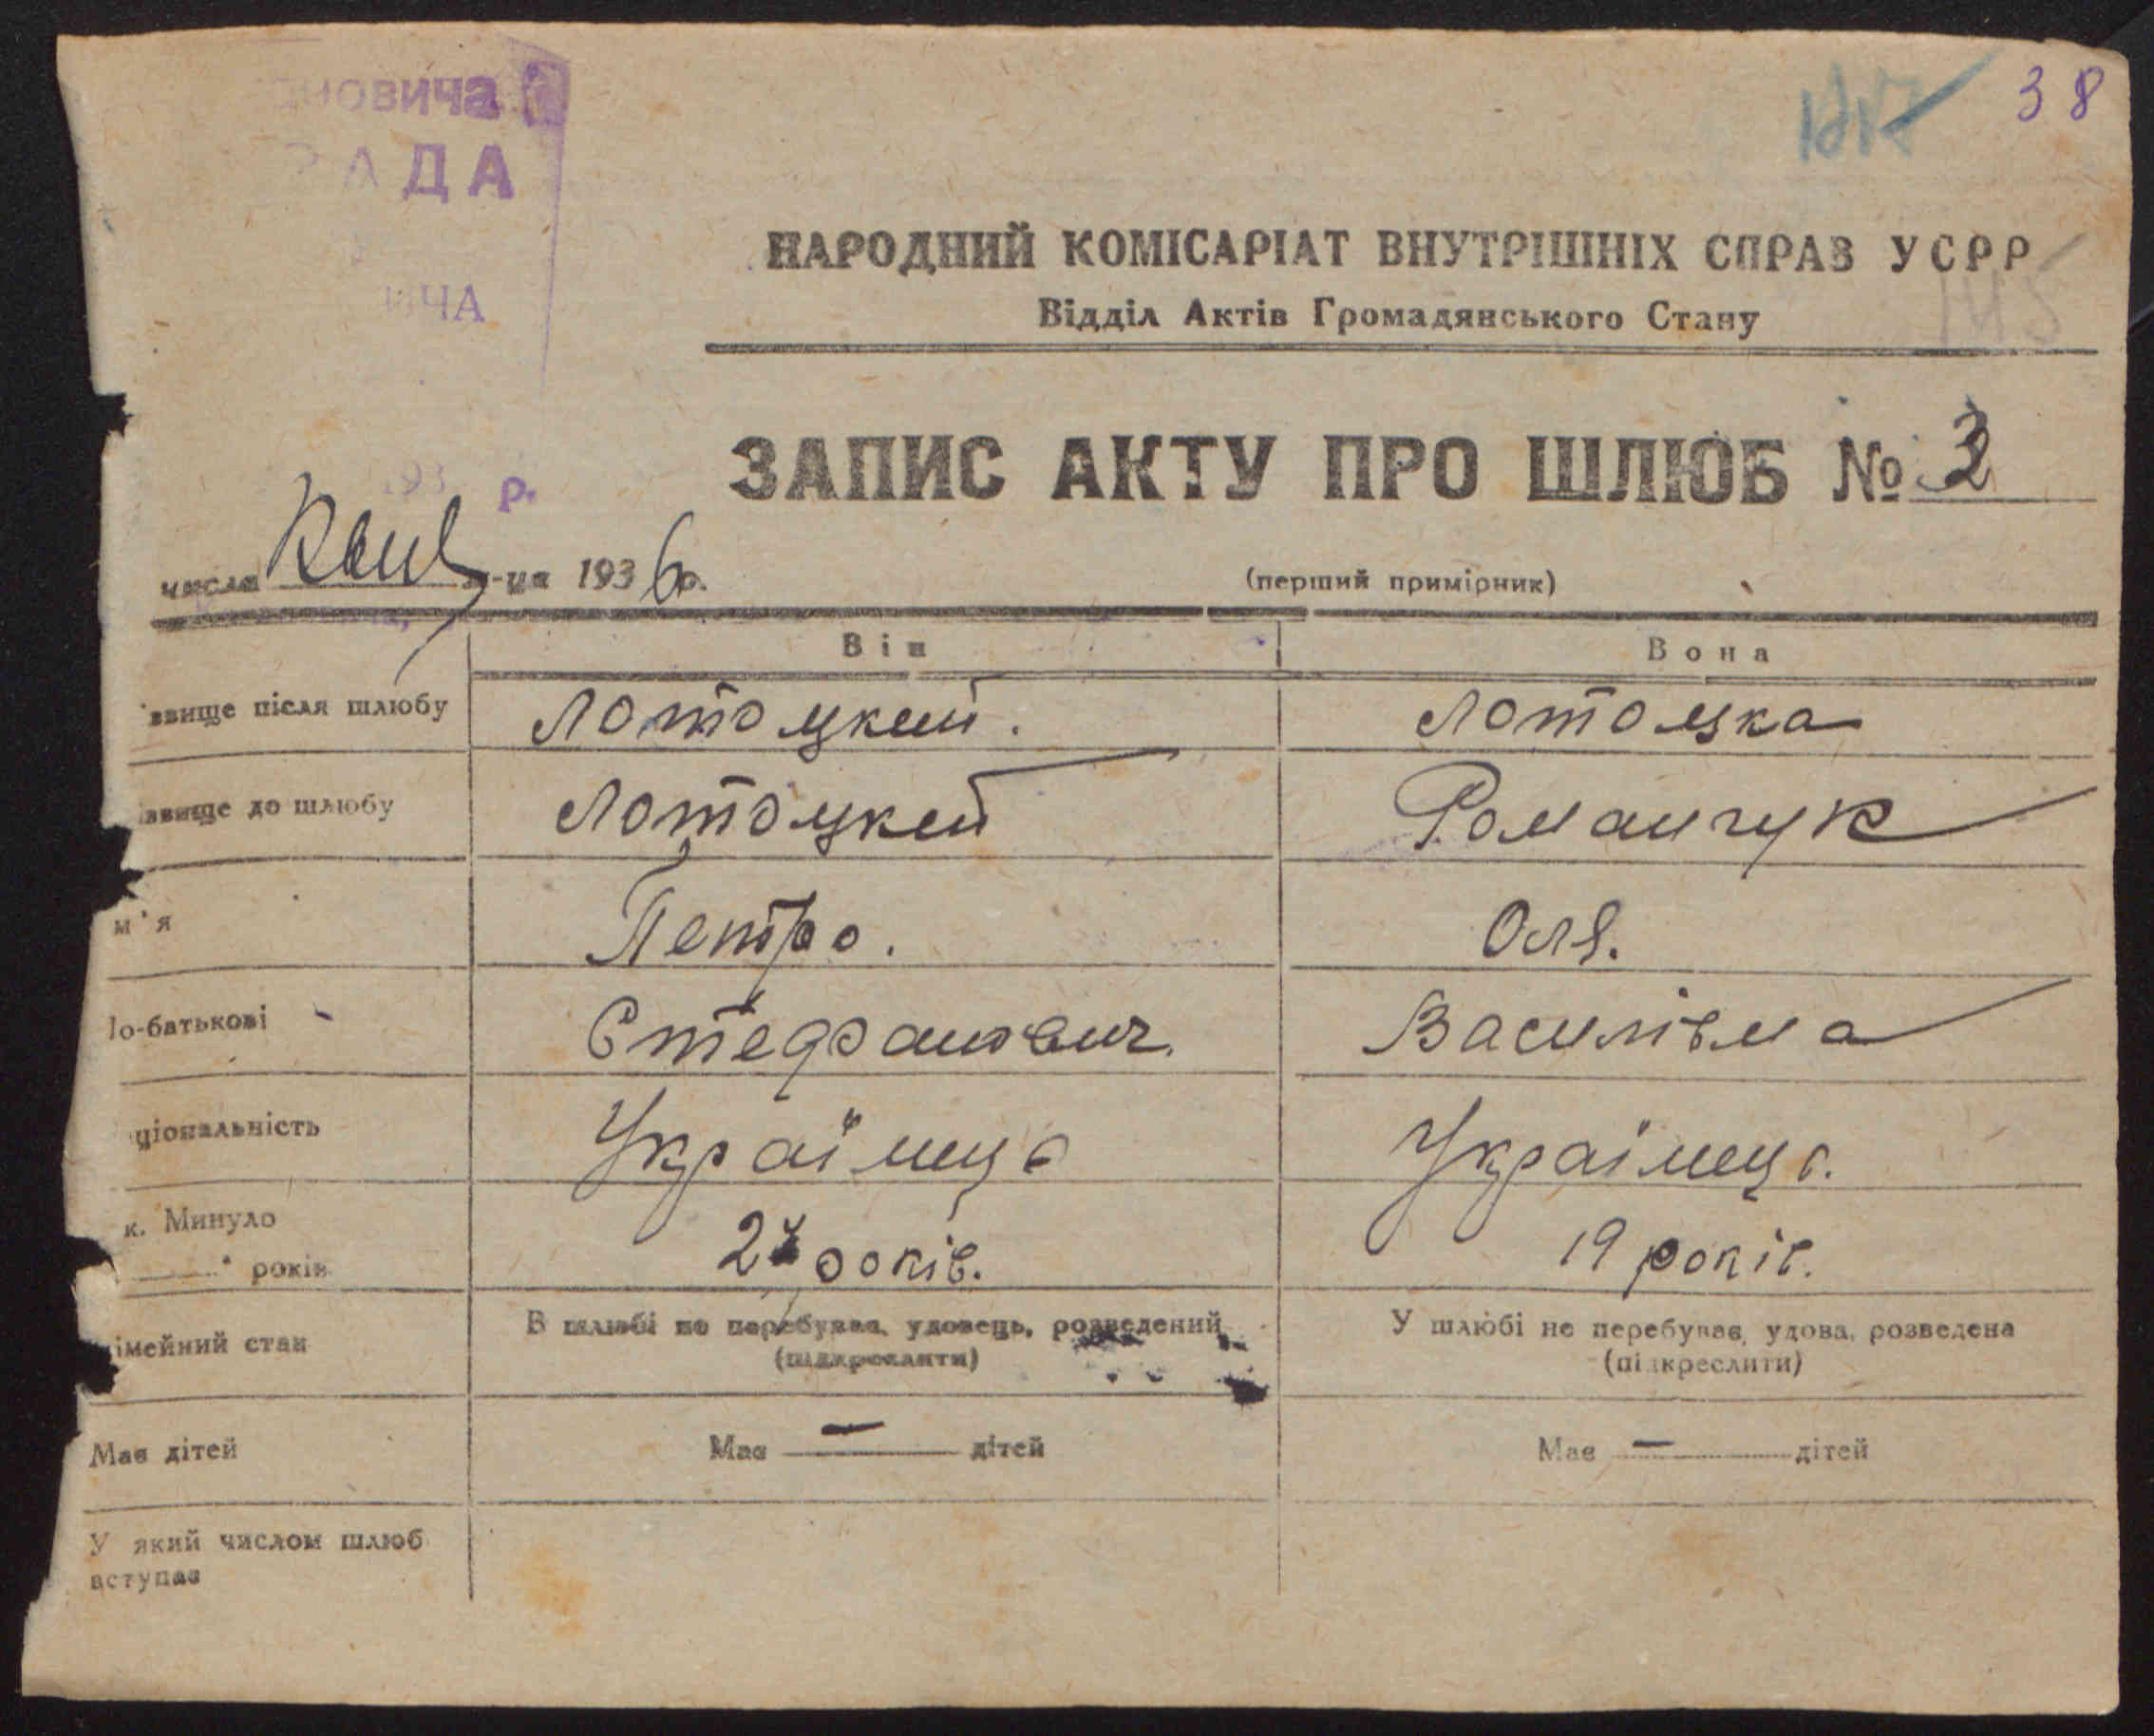 новича
РАДА
ИЧА
38
145
НАРОДНИЙ КОМІСАРІАТ ВНУТРІШНІХ СПРАВ УСРР
Відділ Актів Громадянського Стану
ЗАПИС АКТУ ПРО ШЛЮБ № 3
193 р.
числа м-ця 1936 р.
(перший примірник)
Він Вона
ввище після шлюбу Лотоцкий. Лотоцка
звище до шлюбу Лотоцкий Романчук
м'я Петро. Оля.
По-батькові Стефанович. Василівна
ціональність Українец Українец.
к. Минуло
років 24 років. 19 років.
імейний стан В шлюбі не перебував, удовець, розведений У шлюбі не перебувае, удова, розведена
(підкреслити) (підкреслити)
Має дітей Має — дітей Має — дітей
У який числом шлюб
вступає